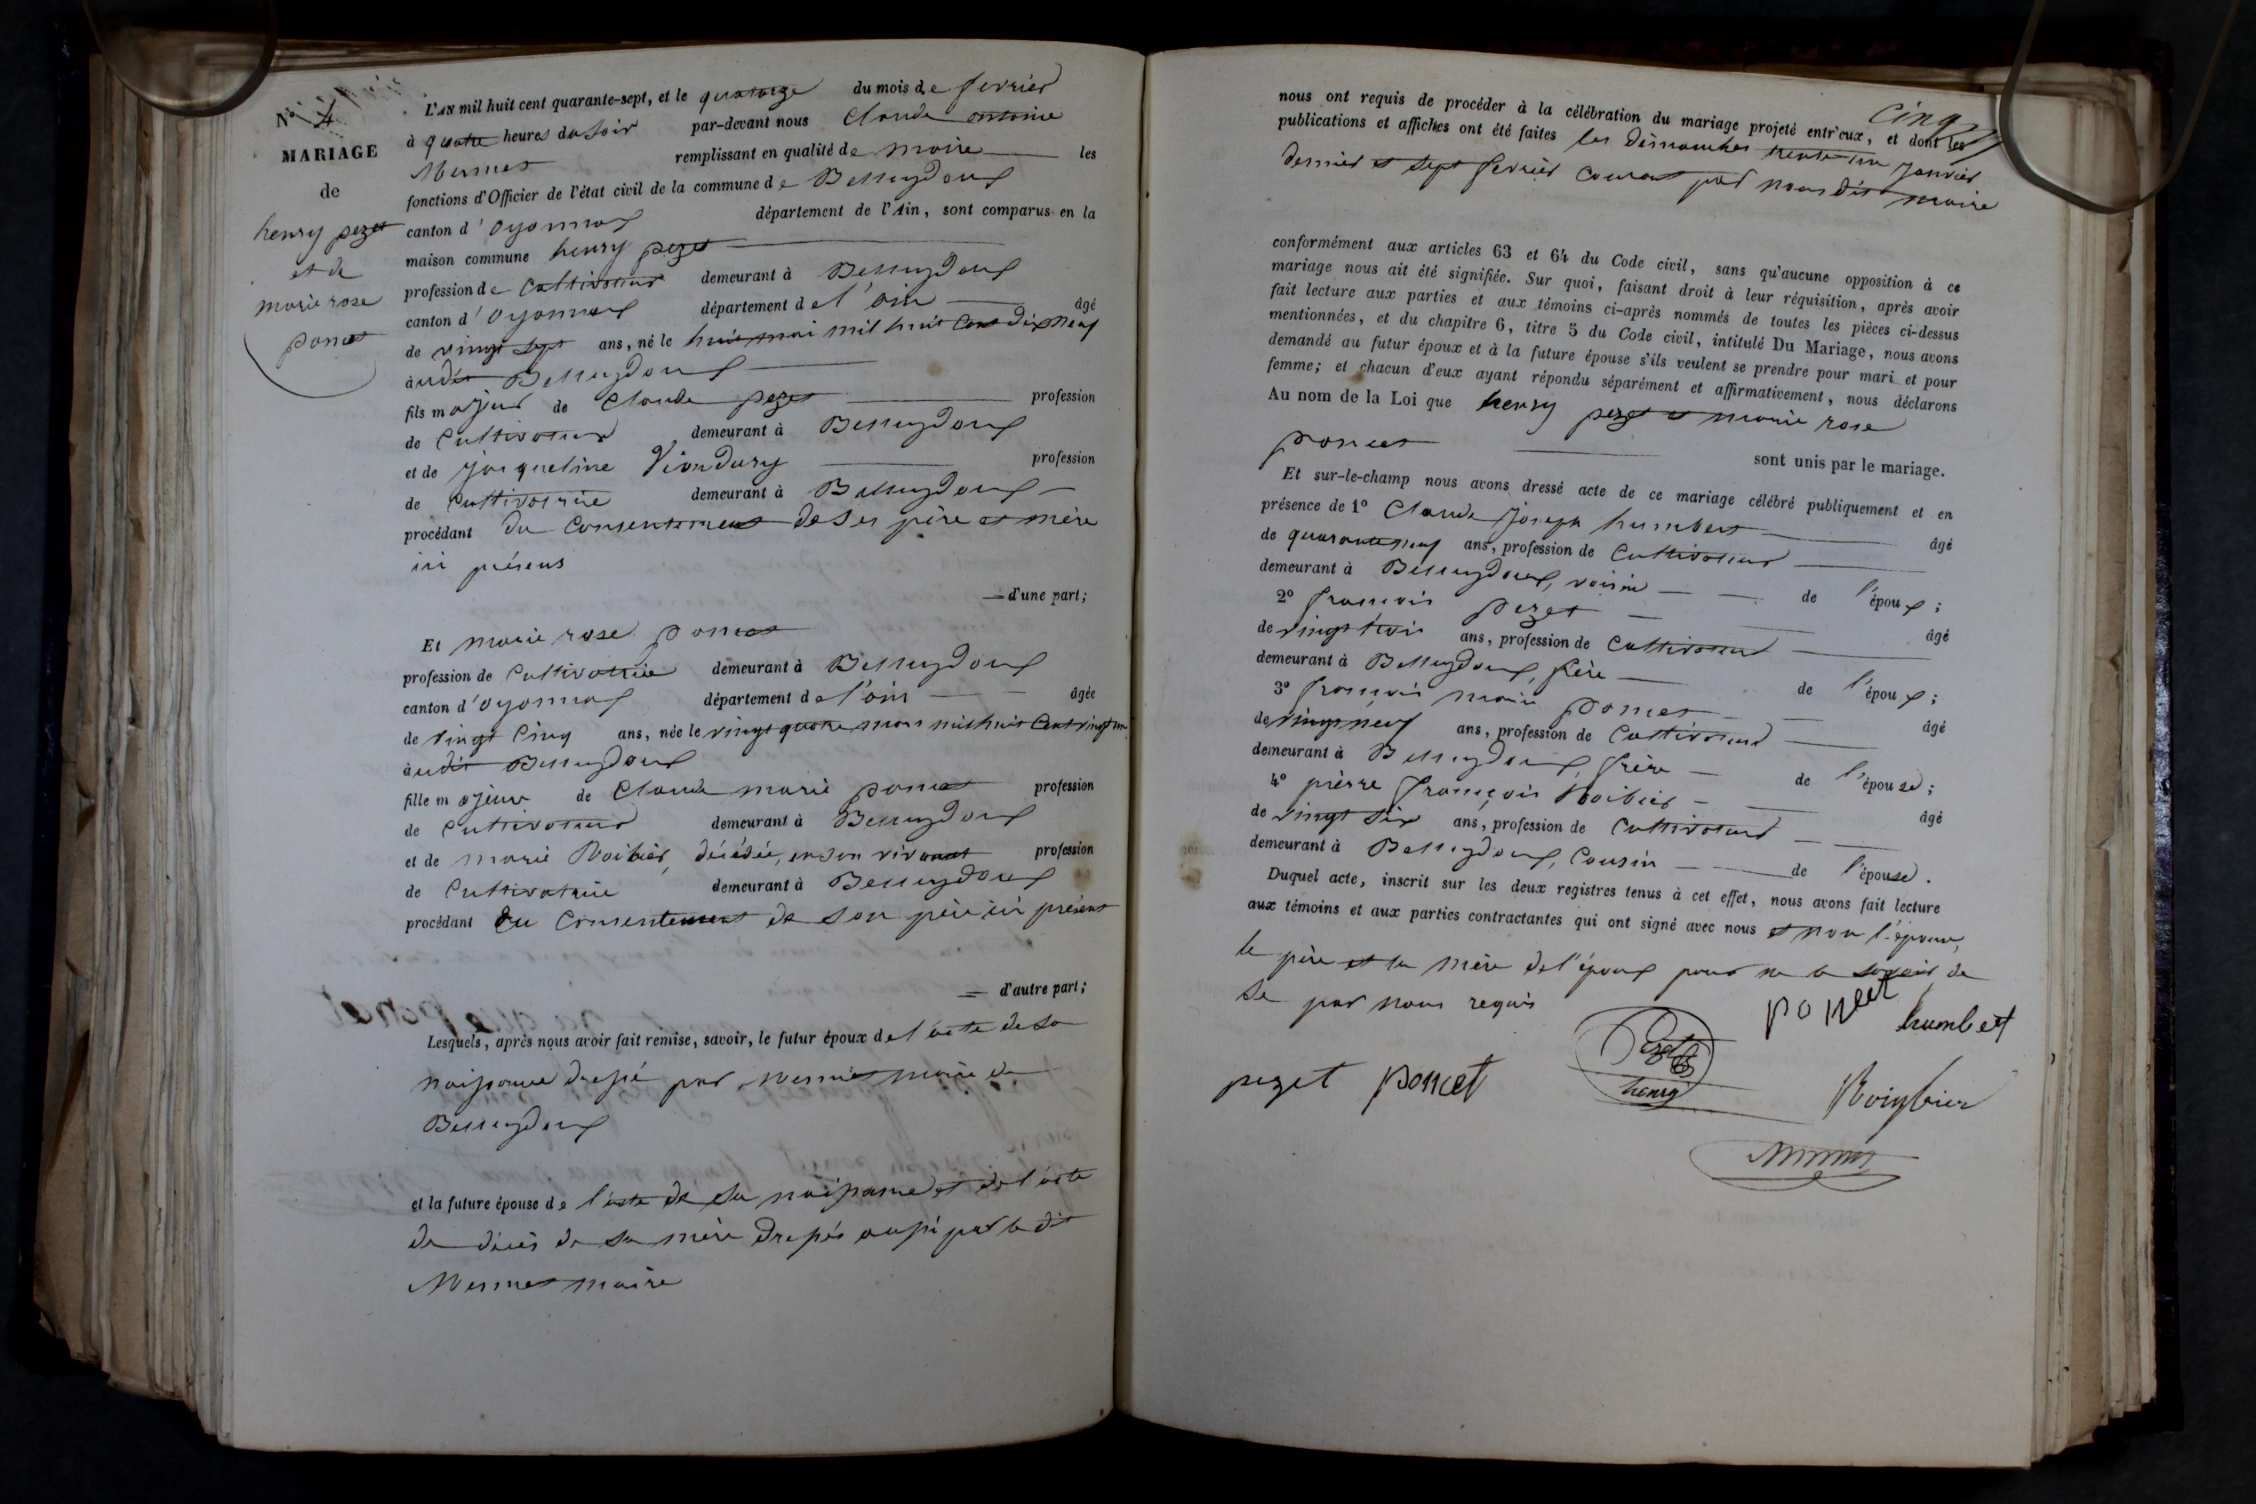 N° 4
MARIAGE
de
henry pezet
et de
marie rose
poncet
L'AN mil huit cent quarante-sept, et le quatorze du mois de fevrier
à quatre heures du soir par-devant nous Claude antoine
Mermet remplissant en qualité de maire les
fonctions d'Officier de l'état civil de la commune de Belleydoux
canton d'oyonnax département de l'Ain, sont comparus en la
maison commune henry pezet
profession de Cultivateur demeurant à Belleydoux
canton d'oyonnax département de l'ain âgé
de vingt sept ans, né le huit mai mil huit Cent dix neuf
audit Belleydoux
fils majeur de Claude pezet profession
de Cultivateur demeurant à Belleydoux
et de jacqueline Viondury profession
de Cultivatrice demeurant à Belleydoux
procédant du Consentement de ses père et mère
ici présens
d'une part;
Et marie rose poncet
profession de Cultivatrice demeurant à Belleydoux
canton d'oyonnax département de l'ain âgée
de vingt Cinq ans, née le vingt quatre mars mil huit Cent vingt un
audit Belleydoux
fille majeure de Claude marie poncet profession
de Cultivateur demeurant à Belleydoux
et de marie Roibier, décédée, en son vivant profession
de Cultivatrice demeurant à Belleydoux
procédant du Consentement de son père ici présent
d'autre part;
Lesquels, après nous avoir fait remise, savoir, le futur époux de l'acte de sa
naissance dressé par Mermet maire de
Belleydoux
et la future épouse de l'acte de sa naissance et de l'acte
de décès de sa mère dressés aussi par le dit
Mermet maire
Cinq
nous ont requis de procéder à la célébration du mariage projeté entr'eux, et dont les
publications et affiches ont été faites les dimanches trente un Janvier
dernier et sept fevrier Courant par nous dit maire
conformément aux articles 63 et 64 du Code civil, sans qu'aucune opposition à ce
mariage nous ait été signifiée. Sur quoi, faisant droit à leur réquisition, après avoir
fait lecture aux parties et aux témoins ci-après nommés de toutes les pièces ci-dessus
mentionnées, et du chapitre 6, titre 5 du Code civil, intitulé Du Mariage, nous avons
demandé au futur époux et à la future épouse s'ils veulent se prendre pour mari et pour
femme; et chacun d'eux ayant répondu séparément et affirmativement, nous déclarons
Au nom de la Loi que henry pezet et marie rose
poncet sont unis par le mariage.
Et sur-le-champ nous avons dressé acte de ce mariage célébré publiquement et en
présence de 1° Claude Joseph humbert âgé
de quarante neuf ans, profession de Cultivateur
demeurant à Belleydoux, voisin de l'époux;
2° françois pezet âgé
de vingt trois ans, profession de Cultivateur
demeurant à Belleydoux, frère de l'époux;
3° françois marie poncet âgé
de vingt neuf ans, profession de Cultivateur
demeurant à Belleydoux, frère de l'épouse;
4° pierre françois Roibier âgé
de vingt six ans, profession de Cultivateur
demeurant à Belleydoux, Cousin de l'épouse.
Duquel acte, inscrit sur les deux registres tenus à cet effet, nous avons fait lecture
aux témoins et aux parties contractantes qui ont signé avec nous et non l'épouse,
le père et la mère de l'époux pour ne le savoir de
ce par nous requis
poncet
humbert
pezet poncet Pezet henry
Roibier
Mermet